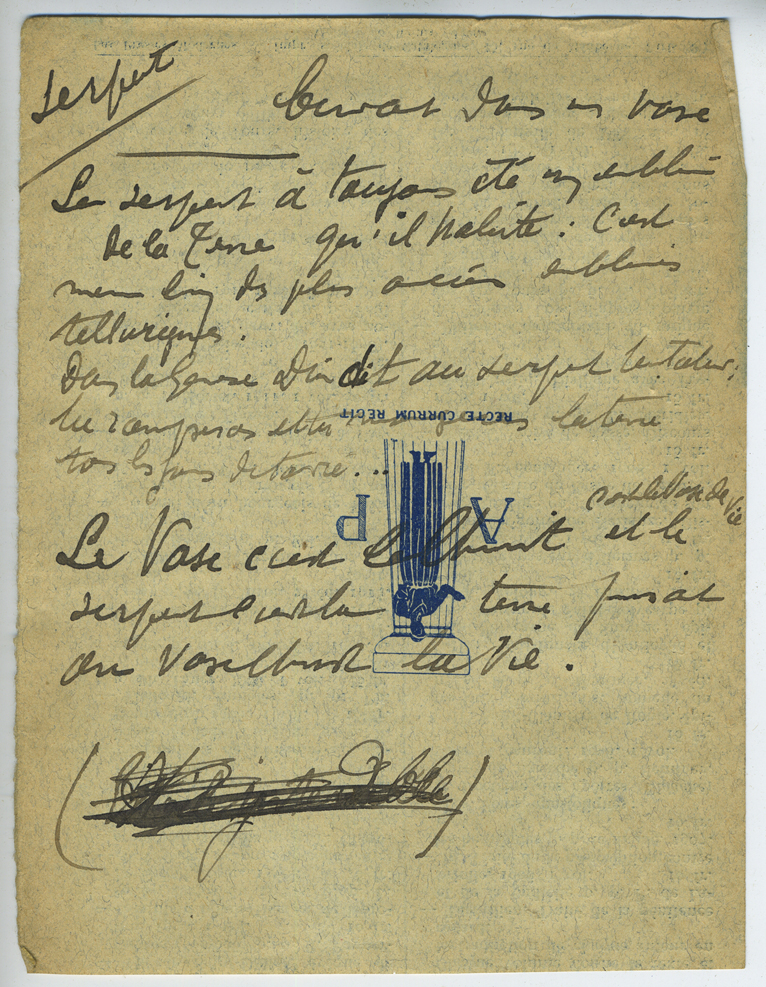 serpent
buvant dans un vase
Le serpent à toujours été un emblème
de la Terre qu'il habite : c'est
meme l'un des plus anciens emblèmes
telluriques.
Dans la Genese Dieu dit au serpent tentateur:
tu ramperas et tu mangeras la terre
tous les jours de ta vie...
RECTE CURRUM REGIT
A P
c'est le Vase de Vie
Le Vase c'est et le
serpent c'est la terre puisant
au Vase la Vie.